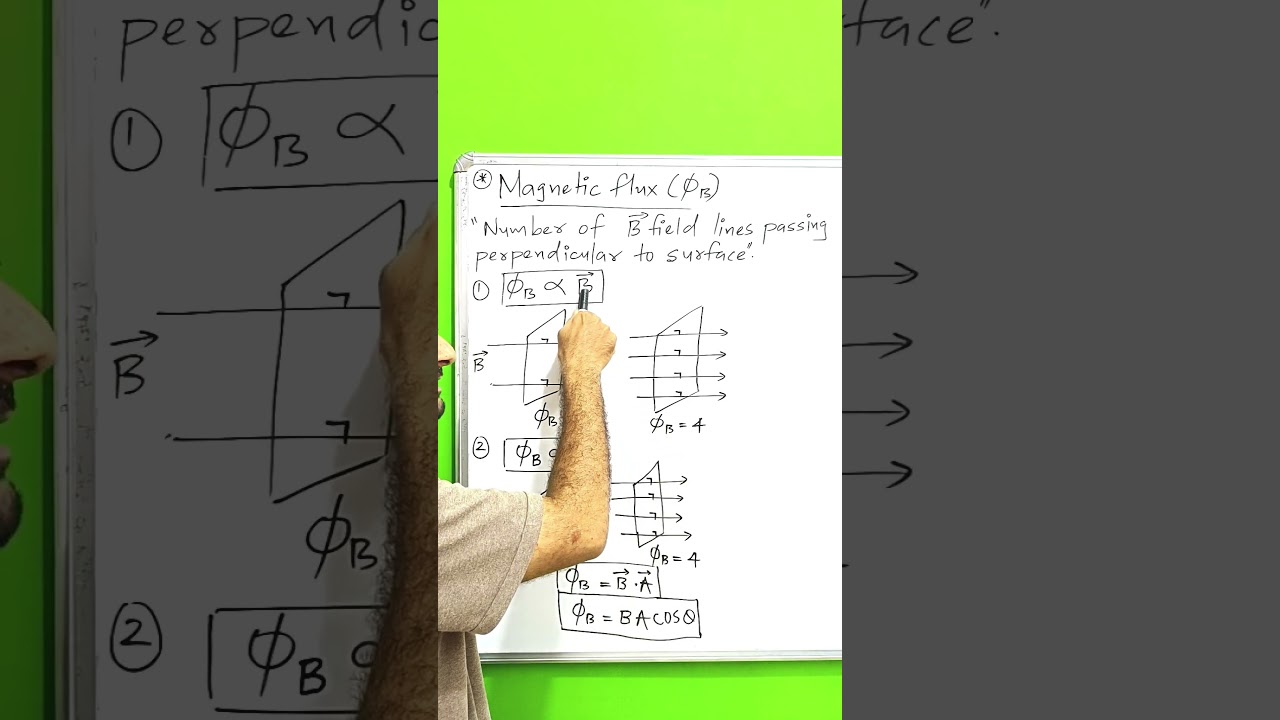 * Magnetic flux (ϕB)
"Number of B⃗ field lines passing
perpendicular to surface".
① ϕB ∝ B⃗
B⃗
ϕB
ϕB = 4
② ϕB ∝
ϕB = 4
ϕB = B⃗ · A⃗
ϕB = BA cosθ